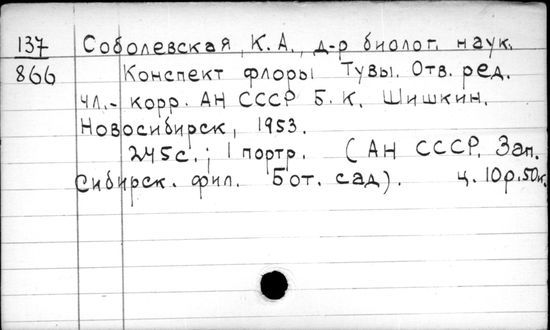 137 Соболевская, К.А., д-р биолог. наук.
866 Конспект флоры Тувы. Отв. ред.
чл.-корр. АН СССР Б.К. Шишкин.
Новосибирск, 1953.
245с.; 1 портр. (АН СССР. Зап.
Сибирск. фил. Бот. сад). ц. 10р.50к.